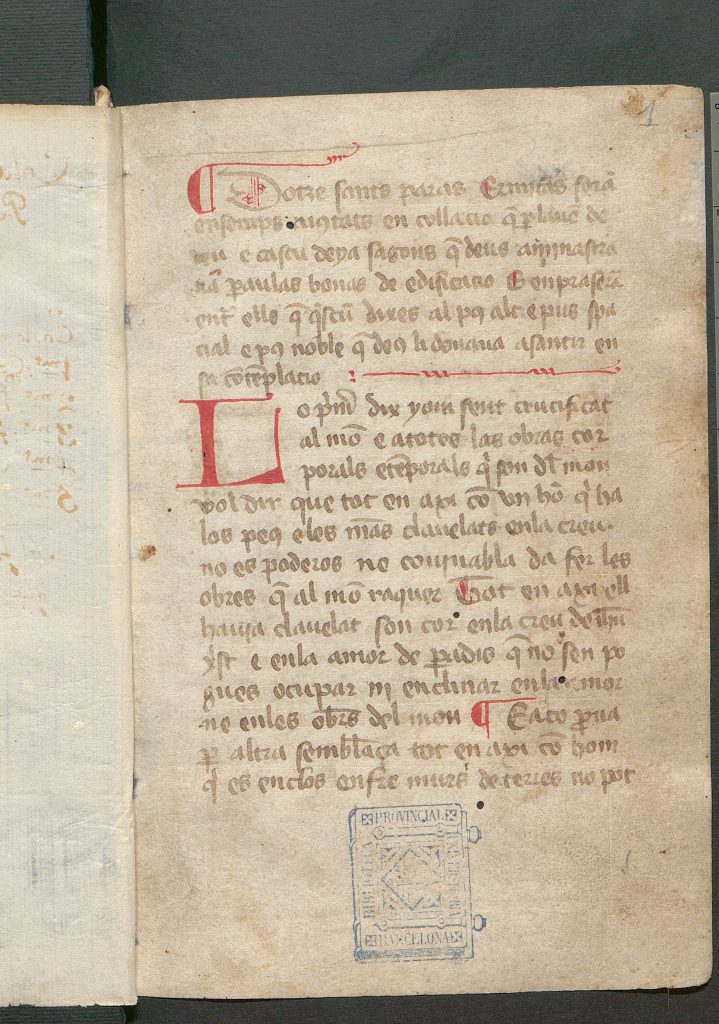 1
¶ Dotze sants paras Ermitās forē
ensemps aiustats en collacio q̄ p̄lauē de
deu e cascu deya sagons q̄ deus aminastra
p̄aulas bonas de edificatio E enpraserā
entr̄ ells q̄ q̄scū dixes al pus alt e pus spa
cial e pus noble q̄ deus li donaua asantir en
sa cōtēplacio
Lo p̄m̄ dix yom sent crucificat
al mō e atotes las obras cor
porals etēporals q̄ son dl̄ mon
vol dir que tot en axi cō vn hō q̄ ha
los peus e les mās clauelats enla creu.
no es poderos ne couinabla da fer les
obres q̄ al mō raquer Tot en axi ell
hauia clauelat son cor enla creu de ih̄u
xp̄st e enla amor de p̄adis q̄ no sen po
gues ocupar ni enclinar enla amor
ne enles obr̄s del mon ¶ E aco p̄ua
p̄ altra semblāça tot en axi cō hom
q̄ es enclos enfre murs de terres no pot
PROVINCIAL
BIBLIOTECA
BARCELONA